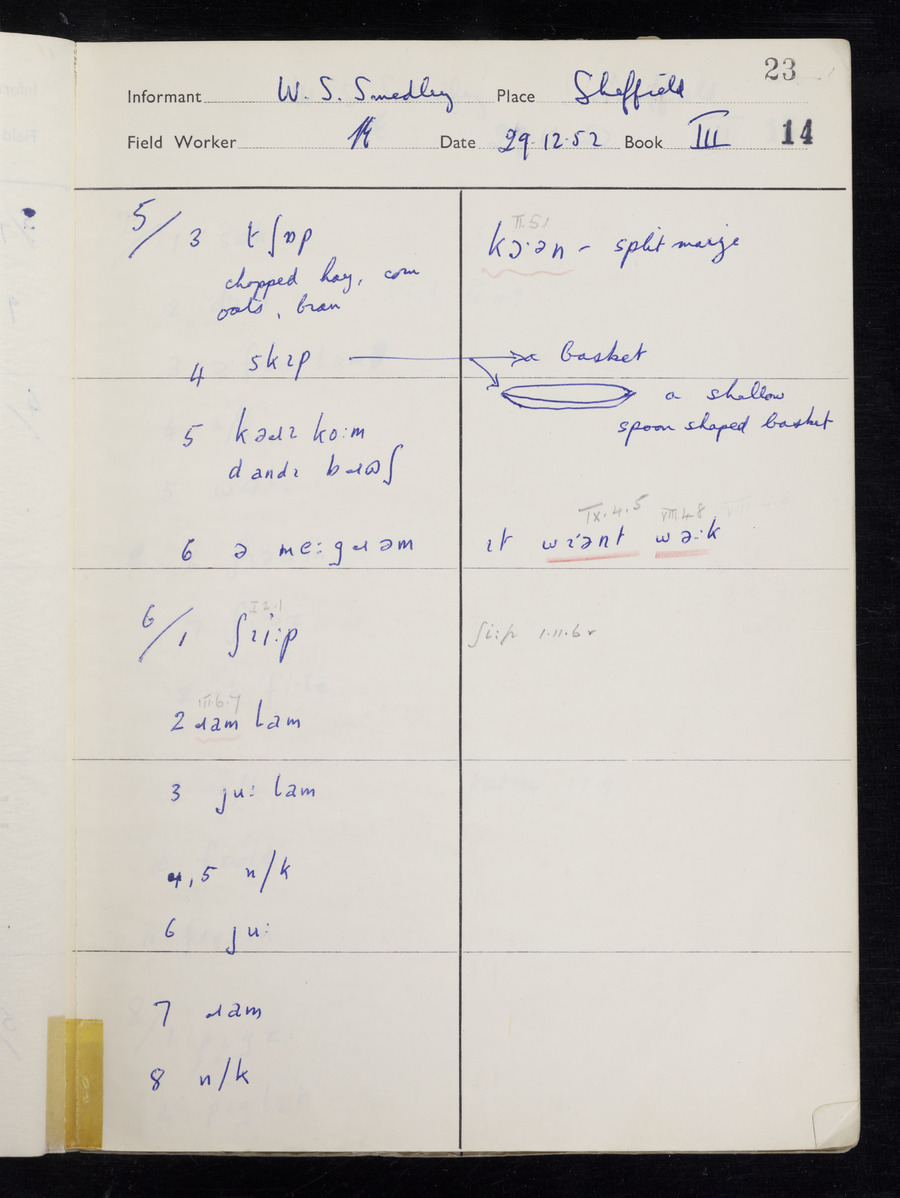 23
Informant W. S. Smedley Place Sheffield
Field Worker Date 29.12.52 Book III 14
5/ 3 tʃɒp
chopped hay, corn
oats, bran
II.5.1
kɔːən - split maize
4 skɪp → a basket
a shallow
spoon shaped basket
5 kəɹɪ koːm
dandɪ bɹɷʃ
6 ə meːgɹəm
IX.4.5 VIII.4.8
ɪt wɪənt wəːk
I.2.1
6/ 1 ʃɪiːp
ʃiːp 1.11.6
III.6.7
2 ɹam lam
3 juː lam
4,5 n/k
6 juː
7 ɹam
8 n/k